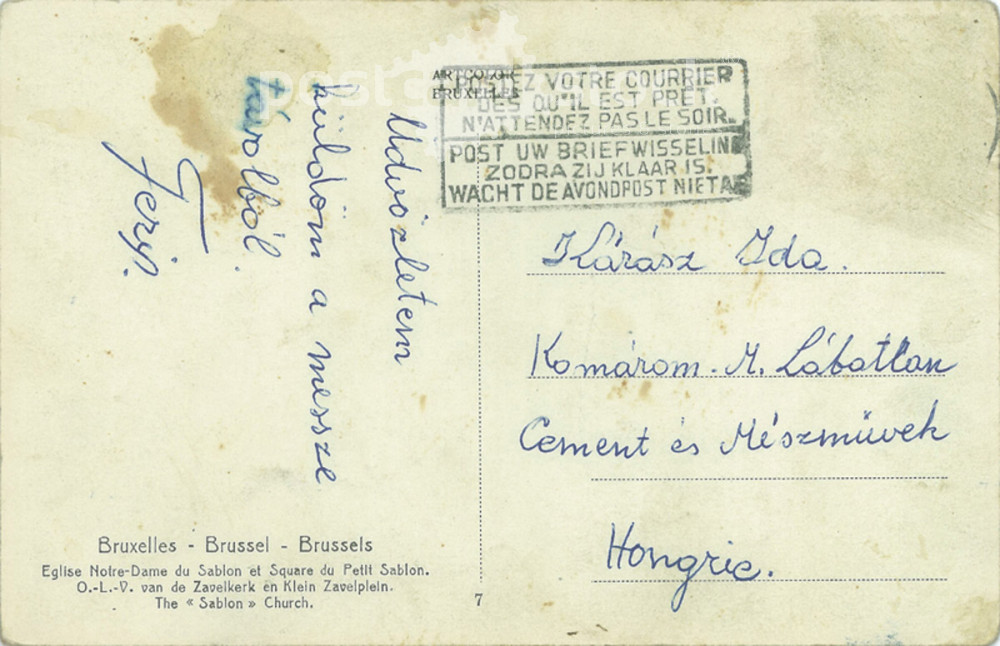 ARTCOLOR
BRUXELLES
POSTEZ VOTRE COURRIER
DÈS QU'IL EST PRÊT.
N'ATTENDEZ PAS LE SOIR.
POST UW BRIEFWISSELING
ZODRA ZIJ KLAAR IS.
WACHT DE AVONDPOST NIET AF
Üdvözletem
küldöm a messze
távolból
Kárász Ida.
Komárom. M. Lábatlan
Cement és Mészművek
Hongrie.
Bruxelles - Brussel - Brussels
Eglise Notre-Dame du Sablon et Square du Petit Sablon.
O.-L.-V. van de Zavelkerk en Klein Zavelplein.
The « Sablon » Church.
7